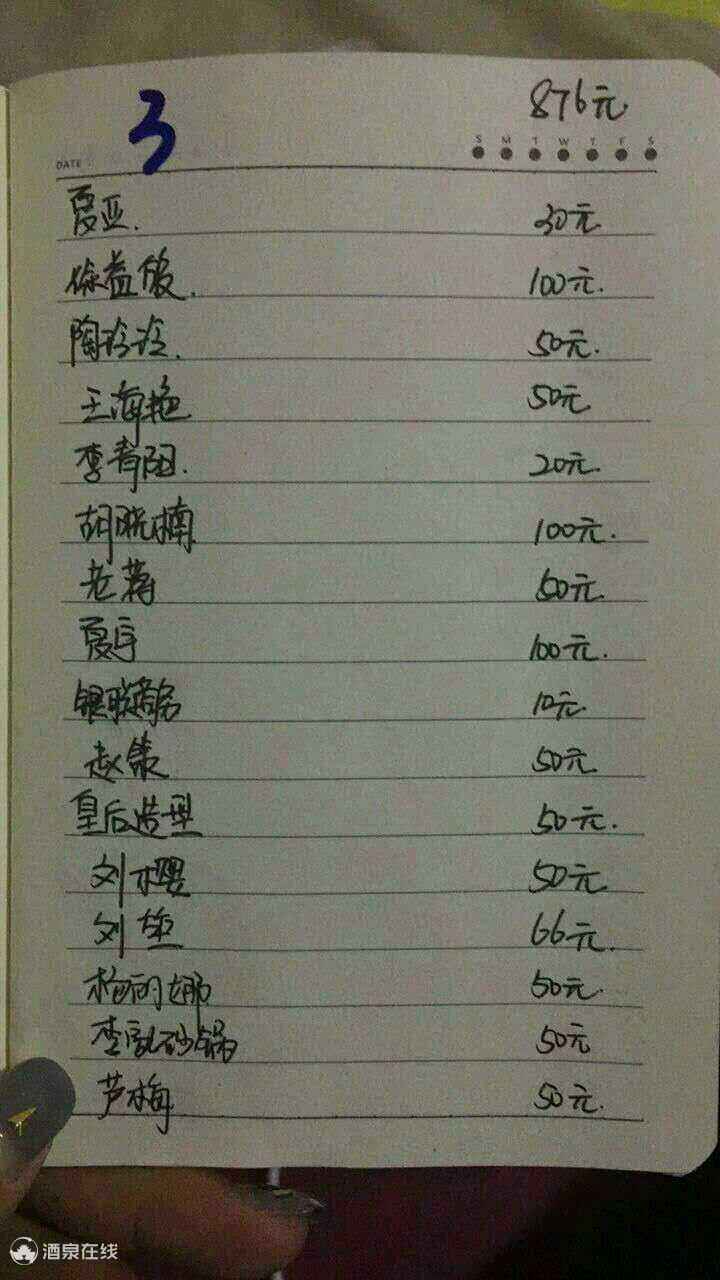 3
876元
DATE
S M T W T F S
夏亚. 30元.
徐益俊. 100元.
陶玲玲. 50元.
王海艳 50元
李青阳. 20元.
胡晓楠 100元.
老蒋 50元.
夏宇 100元.
银联商务 10元.
赵策 50元.
皇后造型 50元.
刘樱 50元
刘 66元.
梅丽娜 50元.
李 砂锅 50元
芦梅 50元.
酒泉在线